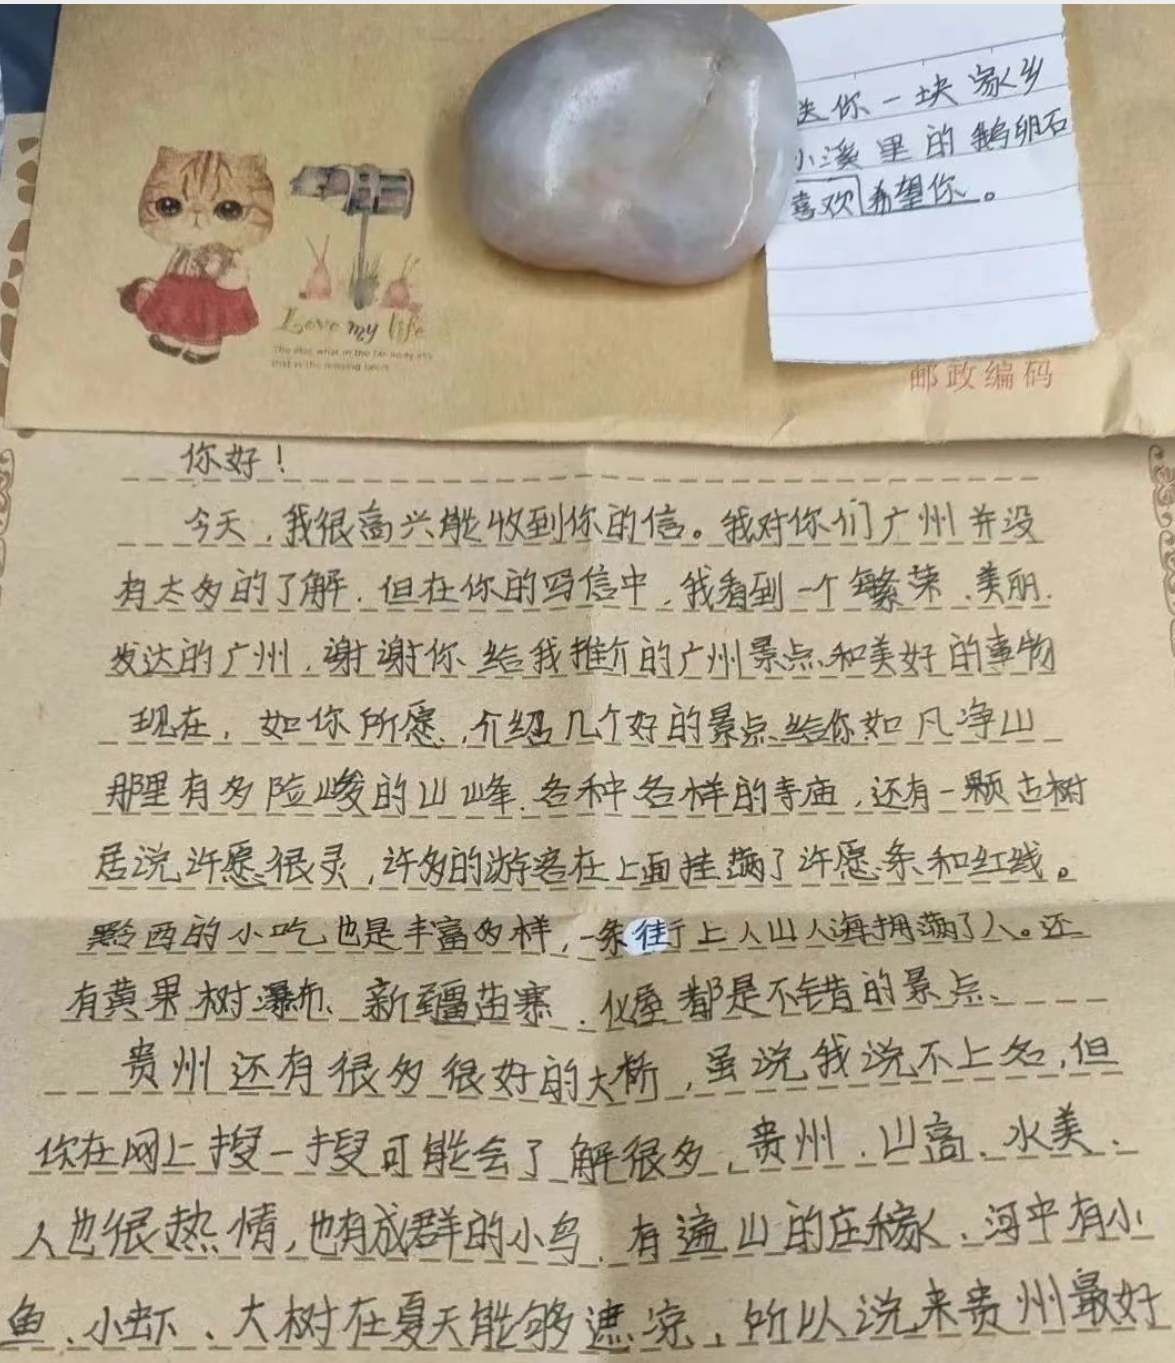 送你一块家乡
小溪里的鹅卵石
喜欢希望你。
Love my life
邮政编码
你好！
今天，我很高兴能收到你的信。我对你们广州并没
有太多的了解，但在你的写信中，我看到一个繁荣、美丽、
发达的广州，谢谢你给我推介的广州景点和美好的事物
现在，如你所愿，介绍几个好的景点给你如凡净山
那里有多险峻的山峰、各种各样的寺庙，还有一颗古树
居说许愿很灵，许多的游客在上面挂满了许愿条和红线。
黔西的小吃也是丰富多样，一条街上人山人海拥满了人。还
有黄果树瀑布、新疆苗寨、化屋都是不错的景点、
贵州还有很多很好的大桥，虽说我说不上名，但
你在网上搜一搜可能会了解很多，贵州、山高、水美、
人也很热情，也有成群的小鸟、有遍山的庄稼、河中有小
鱼、小虾、大树在夏天能够遮凉，所以说来贵州最好